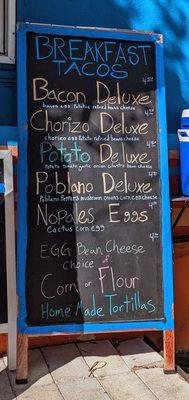 BREAKFAST
TACOS
4.50
Bacon Deluxe
Bacon egg Potatoe refried beans cheese
4.50
Chorizo Deluxe
chorizo egg Potatoe refried beans cheese
4.50
Potato Deluxe
Potato tomato garlic onion cilantro beans cheese
4.50
Poblano Deluxe
Poblano Peppers mushroom onions corn egg cheese
4.50
Nopales Eggs
Cactus corn egg
4.50
EGG Bean Cheese
choice of
Corn or Flour
Home Made Tortillas